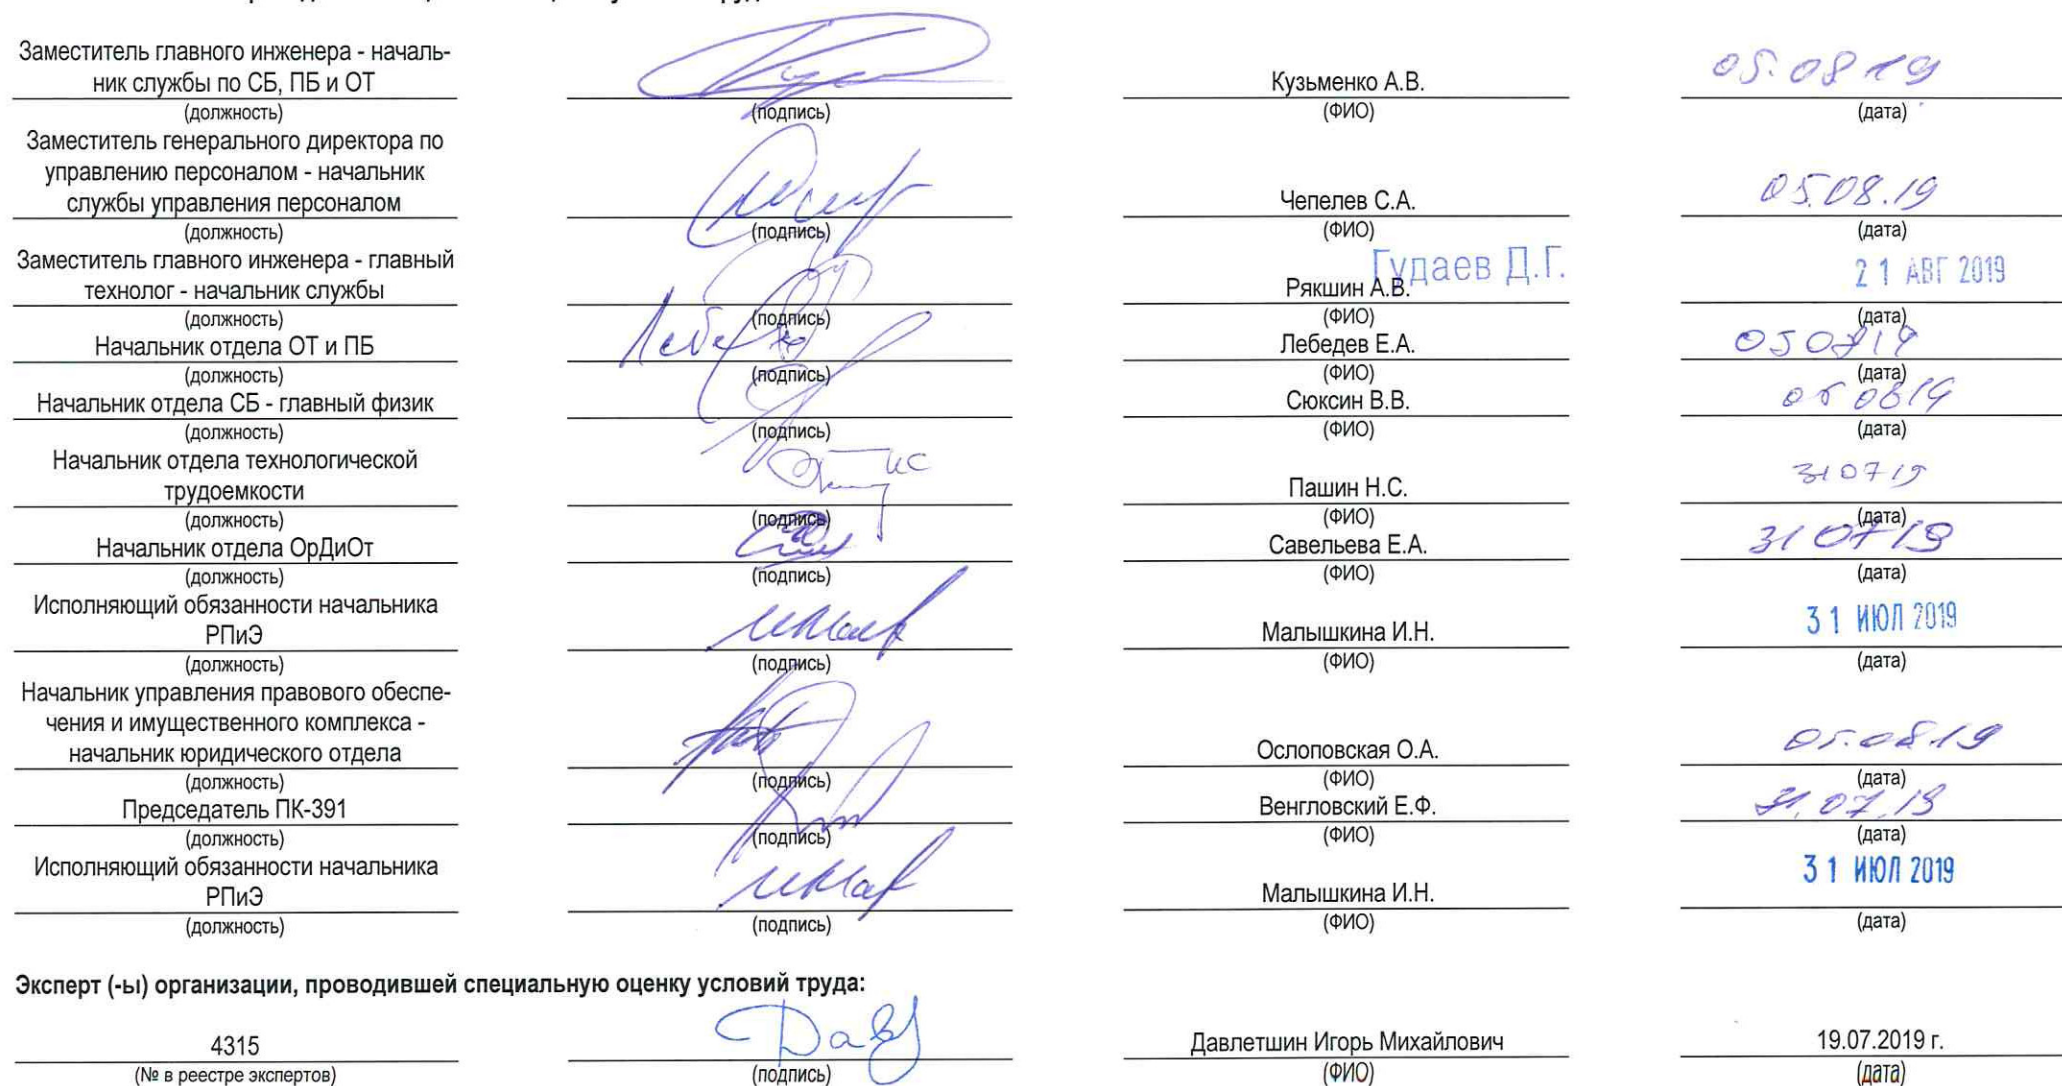 Заместитель главного инженера - началь-
ник службы по СБ, ПБ и ОТ Кузьменко А.В. 05.08 19
(должность) (подпись) (ФИО) (дата)
Заместитель генерального директора по
управлению персоналом - начальник
службы управления персоналом Чепелев С.А. 05.08.19
(должность) (подпись) (ФИО) (дата)
Гудаев Д.Г. 21 АВГ 2019
Заместитель главного инженера - главный
технолог - начальник службы Рякшин А.В.
(должность) (подпись) (ФИО) (дата)
Начальник отдела ОТ и ПБ Лебедев Е.А.
(должность) (подпись) (ФИО) (дата)
Начальник отдела СБ - главный физик Сюксин В.В. 05 0819
(должность) (подпись) (ФИО) (дата)
Начальник отдела технологической
трудоемкости Пашин Н.С. 310719
(должность) (подпись) (ФИО) (дата)
Начальник отдела ОрДиОт Савельева Е.А. 31 07 19
(должность) (подпись) (ФИО) (дата)
Исполняющий обязанности начальника
РПиЭ Малышкина И.Н. 31 ИЮЛ 2019
(должность) (подпись) (ФИО) (дата)
Начальник управления правового обеспе-
чения и имущественного комплекса -
начальник юридического отдела Ослоповская О.А. 05.08.19
(должность) (подпись) (ФИО) (дата)
Председатель ПК-391 Венгловский Е.Ф. 31.07.19
(должность) (подпись) (ФИО) (дата)
Исполняющий обязанности начальника
РПиЭ Малышкина И.Н. 31 ИЮЛ 2019
(должность) (подпись) (ФИО) (дата)
Эксперт (-ы) организации, проводившей специальную оценку условий труда:
4315 Давлетшин Игорь Михайлович 19.07.2019 г.
(№ в реестре экспертов) (подпись) (ФИО) (дата)